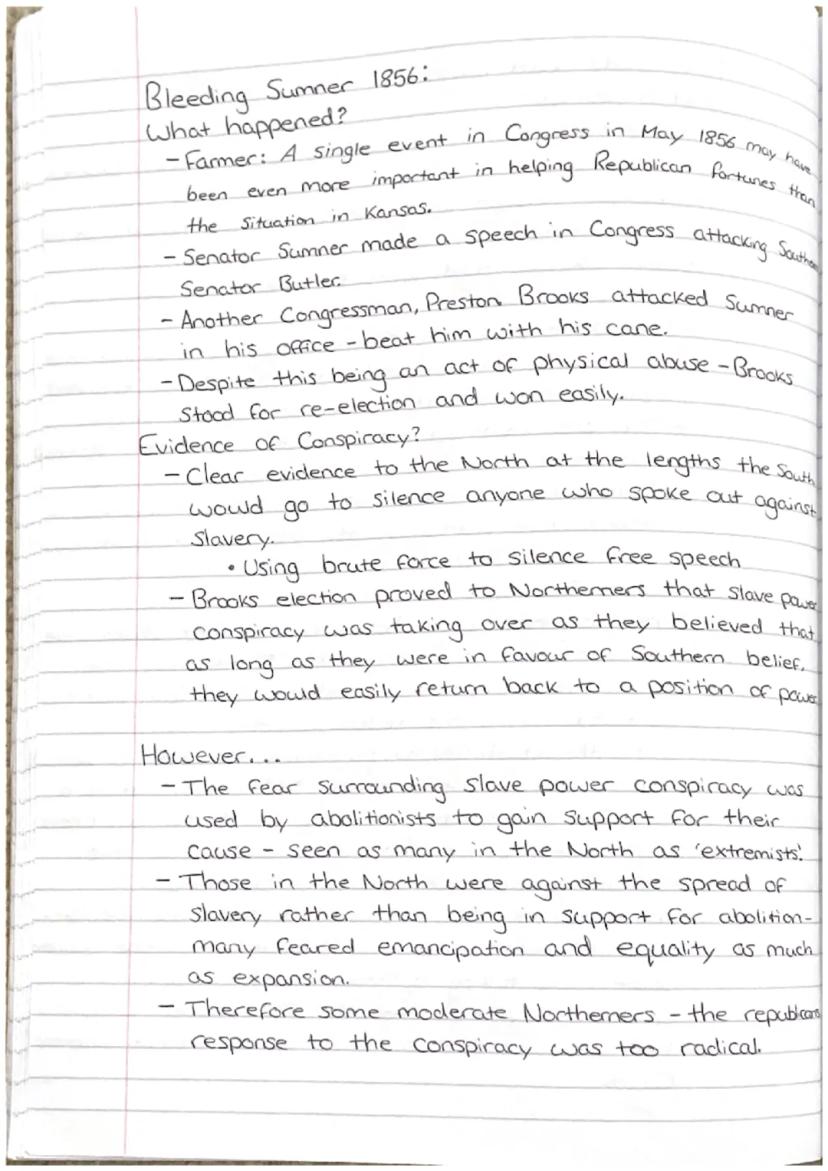 Bleeding Sumner 1856:
What happened?
- Farmer: A single event in Congress in May 1856 may have
been even more important in helping Republican fortunes than
the situation in Kansas.
- Senator Sumner made a speech in Congress attacking Southern
Senator Butler.
- Another Congressman, Preston Brooks attacked Sumner
in his office - beat him with his cane.
- Despite this being an act of physical abuse - Brooks
stood for re-election and won easily.
Evidence of Conspiracy?
- Clear evidence to the North at the lengths the South
would go to silence anyone who spoke out against
slavery.
• Using brute force to silence free speech
- Brooks election proved to Northerners that slave power
conspiracy was taking over as they believed that
as long as they were in favour of Southern belief,
they would easily return back to a position of power
However...
- The fear surrounding slave power conspiracy was
used by abolitionists to gain support for their
cause - seen as many in the North as 'extremists'.
- Those in the North were against the spread of
slavery rather than being in support for abolition -
many feared emancipation and equality as much
as expansion.
- Therefore some moderate Northerners - the republicans
response to the conspiracy was too radical.